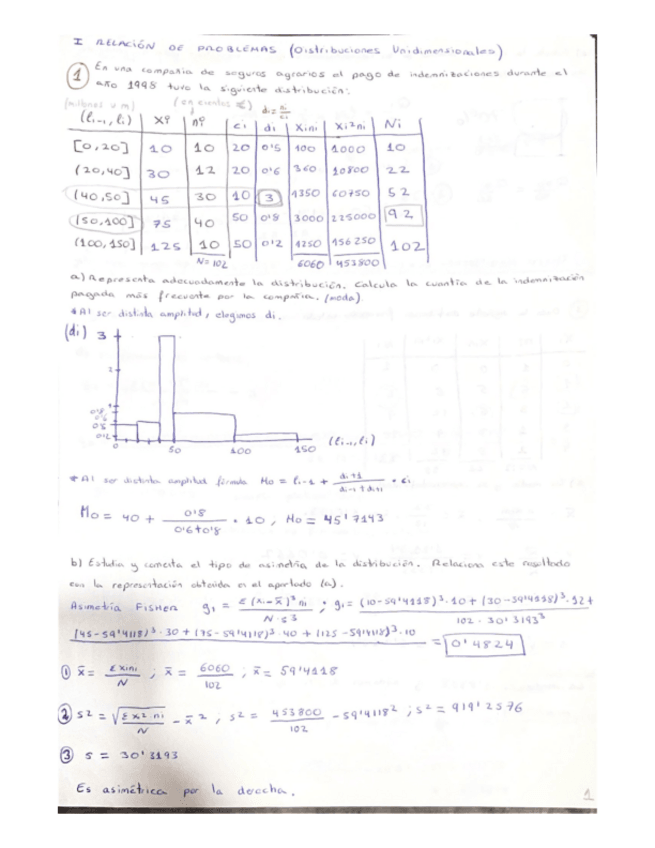 I RELACIÓN DE PROBLEMAS (Distribuciones Unidimensionales)
1 En una compañía de seguros agrarios el pago de indemnizaciones durante el
año 1998 tuvo la siguiente distribución:
(millones u m) (en cientos €) di = ni/ci
(li-1, li) xi nº ci di xini xi²ni Ni
[0,20] 10 10 20 0'5 100 1000 10
(20,40] 30 12 20 0'6 360 10800 22
(40,50] 45 30 10 3 1350 60750 52
(50,100] 75 40 50 0'8 3000 225000 92
(100,150] 125 10 50 0'2 1250 156250 102
N=102 6060 453800
a) Representa adecuadamente la distribución. Calcula la cuantía de la indemnización
pagada más frecuente por la compañía. (moda)
* Al ser distinta amplitud, elegimos di.
(di) 3
2
1
0'8
0'6
0'5
0'2
0 50 100 150 (li-1, li)
* Al ser distinta amplitud fórmula Mo = li-1 + di+1/(di-1 + di+1) · ci
Mo = 40 + 0'8/(0'6+0'8) · 10, Mo = 45'7143
b) Estudia y comenta el tipo de asimetría de la distribución. Relaciona este resultado
con la representación obtenida en el apartado (a).
Asimetría Fisher g1 = Σ(xi-x̄)³ni / N·s³ ; g1 = (10-59'4118)³·10 + (30-59'4118)³·12+
(45-59'4118)³·30 + (75-59'4118)³·40 + (125-59'4118)³·10 / 102·30'3193³ = 0'4824
1 x̄ = Σxini/N ; x̄ = 6060/102 ; x̄ = 59'4118
2 s² = √Σx²ni/N - x̄², s² = 453800/102 - 59'4118² ; s² = 919'2576
3 s = 30'3193
Es asimétrica por la derecha.
1